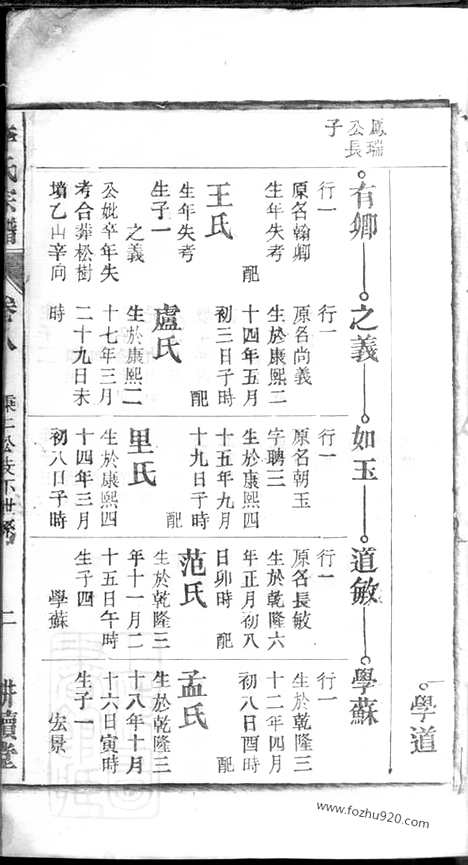 學道
鳳瑞
公長
子
有卿
行一
原名翰卿
生年失考
配
王氏
生年失考
生子一
之義
公妣卒年失
考合葬松樹
墳乙山辛向
之義
行一
原名尚義
生於康熙二
十四年五月
初三日子時
配
盧氏
生於康熙二
十七年三月
二十九日未
時
如玉
行一
原名朝玉
字聘三
生於康熙四
十五年九月
十九日子時
配
里氏
生於康熙四
十四年三月
初八日子時
道敏
行一
原名長敏
生於乾隆六
年正月初八
日卯時 配
范氏
生於乾隆三
年十一月二
十五日午時
生子四
學蘇
學蘇
行一
生於乾隆三
十二年四月
初八日酉時
配
孟氏
生於乾隆三
十八年十月
十六日寅時
生子一
宏景
氏宗譜
卷八
公支下世系
二
耕讀堂
www.fozhu920.com